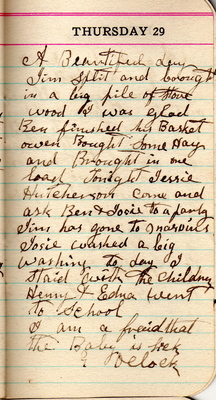 THURSDAY 29
A Beautiful day
Jim split and brought
in a big pile of stove
wood I was glad
Ben finished his Basket
owen Bought Some Hay
and Brought in one
load Tonight Jessie
Hutcherson come and
ask Ben & Josie to a party
Jim has gone to
Josie washed a big
washing to day I
staid with the children
Henry & Edna went
to School
I am a freaid that
the Baby is sick
O'clock